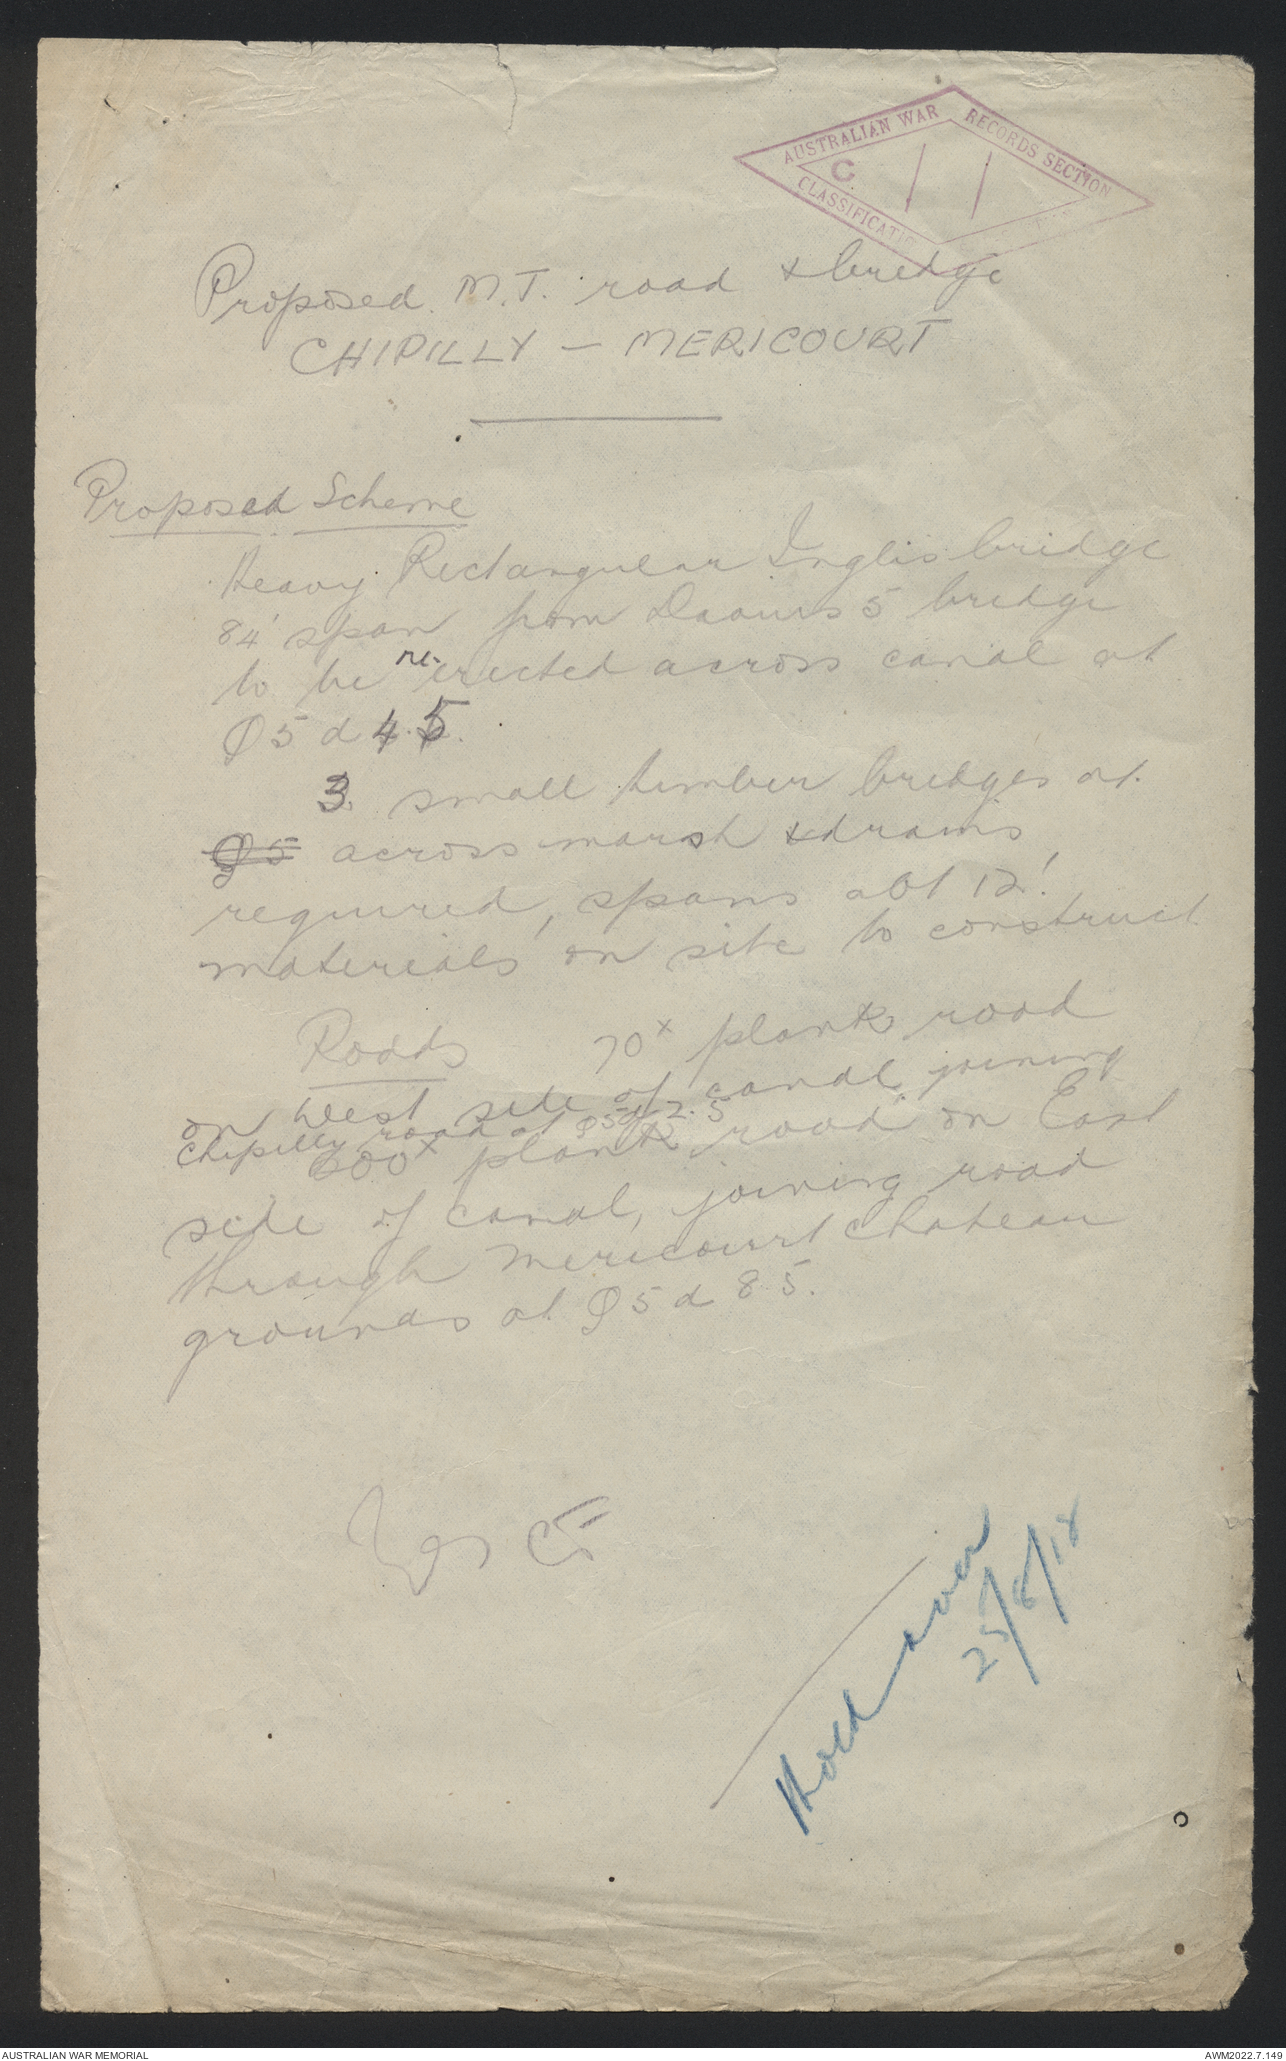 AUSTRALIAN WAR RECORDS SECTION
C / /
CLASSIFICATI
Proposed M.T. road & bridge
CHIPILLY — MERICOURT
Proposed Scheme
Heavy Rectangular Inglis bridge
84' span from Daours 5 bridge
to be re-erected across canal at
Q5d 4.5.
3 small timber bridges at
Q5 across marsh & drains
required, spans abt 12'.
materials on site to construct
Roads 70x plank road
on West side of canal joining
Chipilly road at Q5d 2.5
600x plank road on East
side of canal, joining road
through Mericourt Chateau
grounds at Q5d 8.5.
Hold over
25/8/18
AUSTRALIAN WAR MEMORIAL
AWM2022.7.149